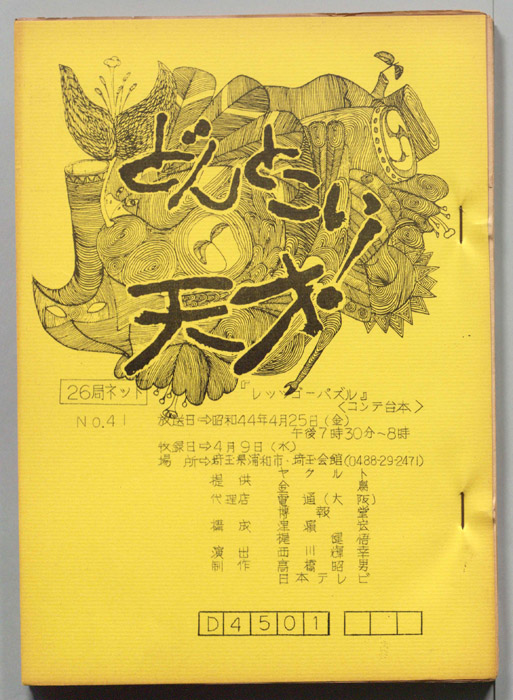 どんとこい!
天才
26局ネット
『レッツゴーパズル』
<コンテ台本>
NO.41
放送日⇨昭和44年4月25日(金)
午後7時30分~8時
收録日⇨4月9日(水)
場所⇨埼玉県浦和市・埼玉会館(0488-29-2471)
提供 ヤクルト
金鳥
代理店 電通(大阪)
博報堂
構成
健悟
演出 西川輝幸
制作 高橋昭男
日本テレビ
D4501